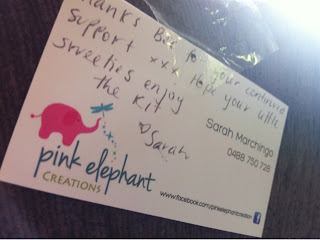 Thanks Bec for your continued
support xxx Hope your little
sweeties enjoy
the kit
♡Sarah
Sarah Marchingo
0488 750 728
pink elephant
CREATIONS
www.facebook.com/pinkelephantcreation
f